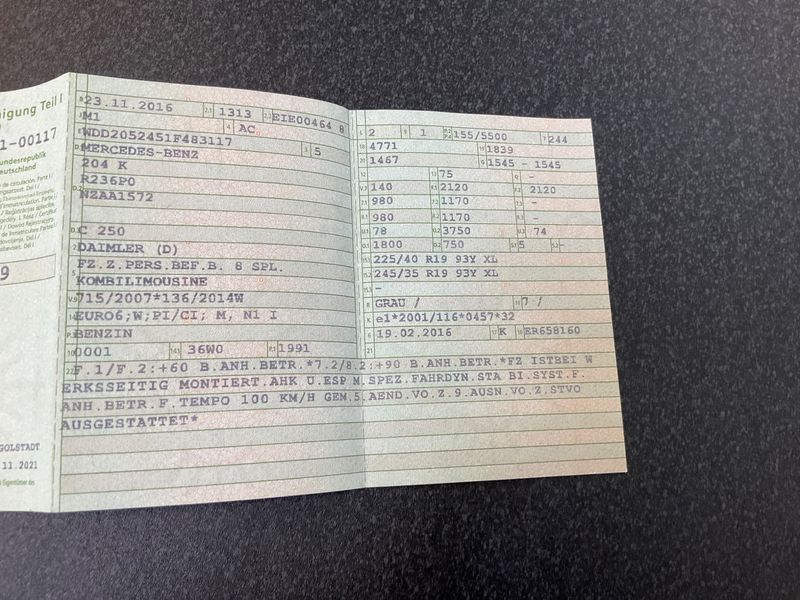 igung Teil I
1-00117
undesrepublik
eutschland
9
GOLSTADT
11.2021
B 23.11.2016 2.1 1313 2.2 EIE00464 8
J M1 4 AC
E WDD2052451F483117
D.1 MERCEDES-BENZ 3 5
204 K
D.2 R236P0
NZAA1572
D.3 C 250
2 DAIMLER (D)
5 FZ.Z.PERS.BEF.B. 8 SPL.
KOMBILIMOUSINE
V.9 715/2007*136/2014W
14 EURO6;W;PI/CI; M, N1 I
P.3 BENZIN
10 0001 14.1 36W0 P.1 1991
L 2 9 1 P.2 P.4 155/5500 T 244
18 4771 19 1839
20 1467 G 1545 - 1545
12 - 13 75 Q -
V.7 140 F.1 2120 F.2 2120
7.1 980 7.2 1170 7.3 -
8.1 980 8.2 1170 8.3 -
U.1 78 U.2 3750 U.3 74
O.1 1800 O.2 750 S.1 5 S.2 -
15.1 225/40 R19 93Y XL
15.2 245/35 R19 93Y XL
15.3 -
R GRAU / 11 7 /
K e1*2001/116*0457*32
6 19.02.2016 17 K 16 ER658160
21
22 F.1/F.2:+60 B.ANH.BETR.*7.2/8.2:+90 B.ANH.BETR.*FZ ISTBEI W
ERKSSEITIG MONTIERT.AHK U.ESP M.SPEZ.FAHRDYN.STA BI.SYST.F.
ANH.BETR.F.TEMPO 100 KM/H GEM.5.AEND.VO.Z.9.AUSN.VO.Z.STVO
AUSGESTATTET*